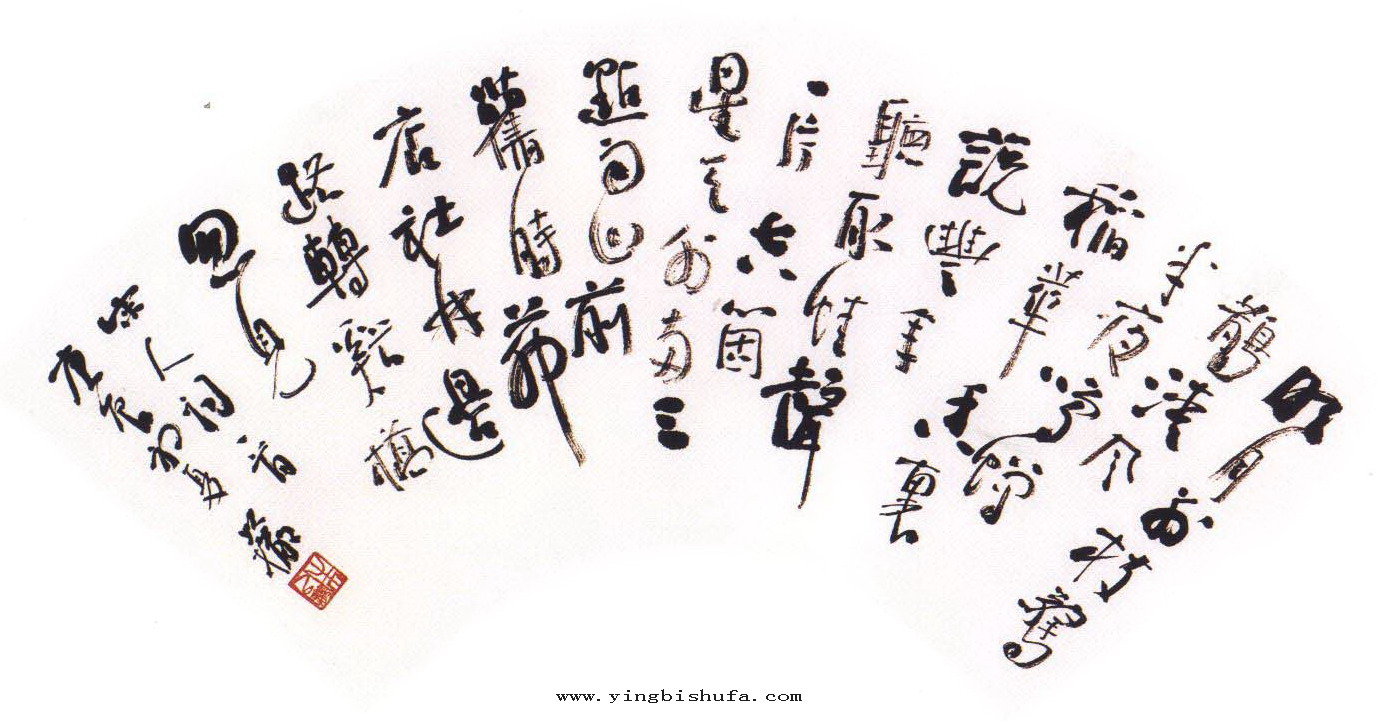 明月別枝驚
鵲清風
半夜鳴蟬
稻華香裏
說豐年
聽取蛙聲
一片七八箇
星天外兩三
點雨山前
舊時茆
店社林邊
路轉谿橋
忽見
宋人詞一首
庚辰初夏
www.yingbishufa.com